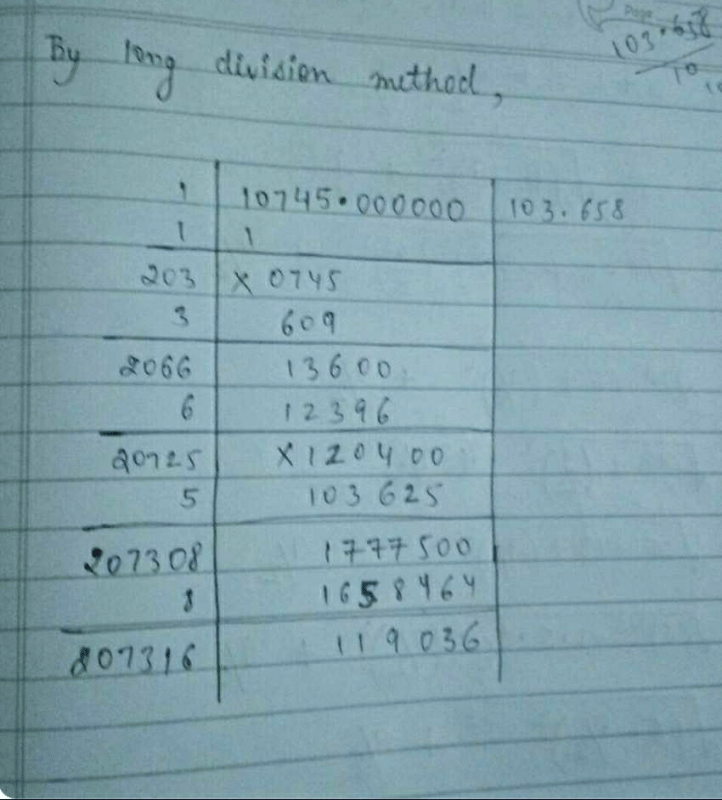 Page
103.658
10
By long division method,
1 10745.000000 103.658
1 1
203 × 0745
3 609
2066 13600
6 12396
20725 ×120400
5 103625
207308 1777500
8 1658464
207316 119036